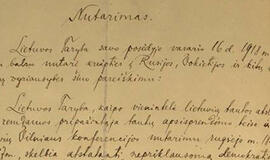 Nutarimas.
Lietuvos Taryba savo posėdyje vasario 16 d. 1918 m.
balsu nutarė kreiptis į Rusijos, Vokietijos ir kitų
vyriausybes šiuo pareiškimu:
Lietuvos Taryba, kaipo vienintelė lietuvių tautos
pripažintąja tautų apsisprendimo teise
Vilniaus konferencijos nutarimu rugsėjo m.
skelbia atstatanti nepriklausomą